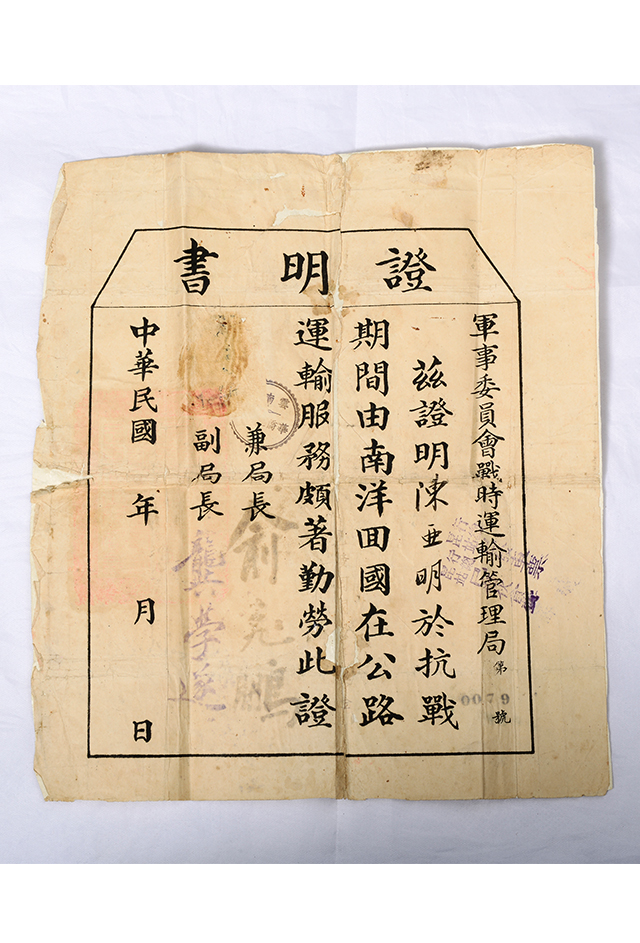 證明書
軍事委員會戰時運輸管理局第0079號
茲證明陳亚明於抗戰
期間由南洋囬國在公路
運輸服務頗著勤勞此證
兼局長 俞飛鵬
副局長 龔學遂
中華民國 年 月 日